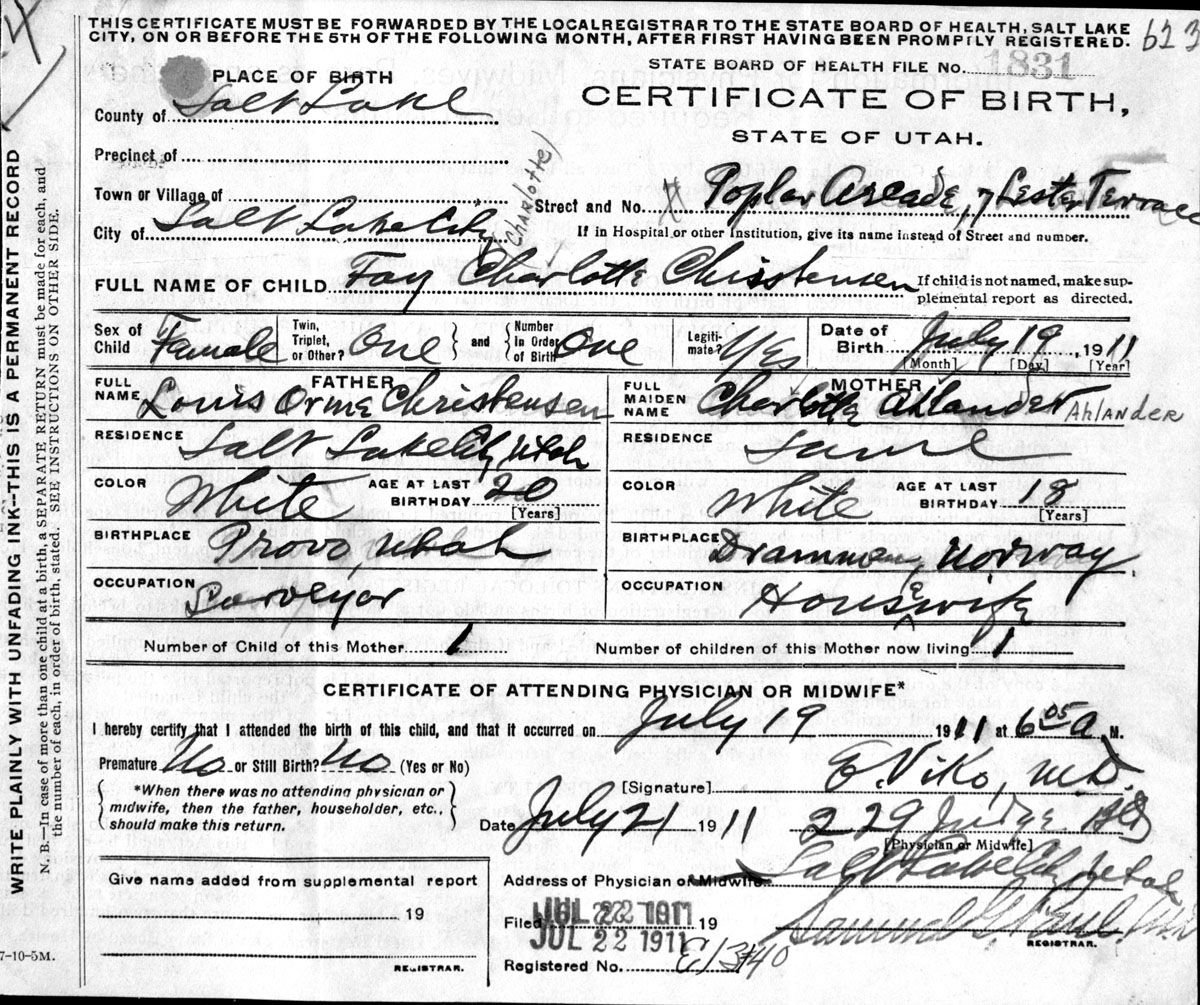 THIS CERTIFICATE MUST BE FORWARDED BY THE LOCAL REGISTRAR TO THE STATE BOARD OF HEALTH, SALT LAKE
CITY, ON OR BEFORE THE 5TH OF THE FOLLOWING MONTH, AFTER FIRST HAVING BEEN PROMPILY REGISTERED. 623
PLACE OF BIRTH
STATE BOARD OF HEALTH FILE No. 1831
County of Salt Lake
CERTIFICATE OF BIRTH,
STATE OF UTAH.
Precinct of
Town or Village of
Charlotte
Street and No. Poplar Arcade, 7 Lester Terrace
City of Salt Lake City
If in Hospital or other Institution, give its name instead of Street and number.
FULL NAME OF CHILD Fay Charlotte Christensen If child is not named, make sup-
plemental report as directed.
Sex of Child Female Twin, Triplet, or Other? One and Number In Order of Birth One Legiti-mate? Yes Date of Birth July 19, 1911
[Month] [Day] [Year]
FATHER MOTHER
FULL NAME Louis Orme Christensen FULL MAIDEN NAME Charlotte Ahlander AHLANDER
RESIDENCE Salt Lake City Utah RESIDENCE Same
COLOR White AGE AT LAST BIRTHDAY 20 [Years] COLOR White AGE AT LAST BIRTHDAY 18 [Years]
BIRTHPLACE Provo, Utah BIRTHPLACE Drammen, Norway.
OCCUPATION Surveyor OCCUPATION Housewife
Number of Child of this Mother 1 Number of children of this Mother now living 1
CERTIFICATE OF ATTENDING PHYSICIAN OR MIDWIFE*
I hereby certify that I attended the birth of this child, and that it occurred on July 19 1911 at 6 05 A. M.
Premature No or Still Birth? No (Yes or No)
*When there was no attending physician or
midwife, then the father, householder, etc.,
should make this return.
[Signature] E. Viko, M.D.
Date July 21 1911 229 Judge Bld
[Physician or Midwife]
Address of Physician or Midwife Salt Lake City Utah
Give name added from supplemental report
19
REGISTRAR.
Filed JUL 22 1911 19
JUL 22 1911
REGISTRAR.
Registered No.
7-10-5M.
WRITE PLAINLY WITH UNFADING INK--THIS IS A PERMANENT RECORD
N. B.--In case of more than one child at a birth, a SEPARATE RETURN must be made for each, and
the number of each, in order of birth, stated. SEE INSTRUCTIONS ON OTHER SIDE.